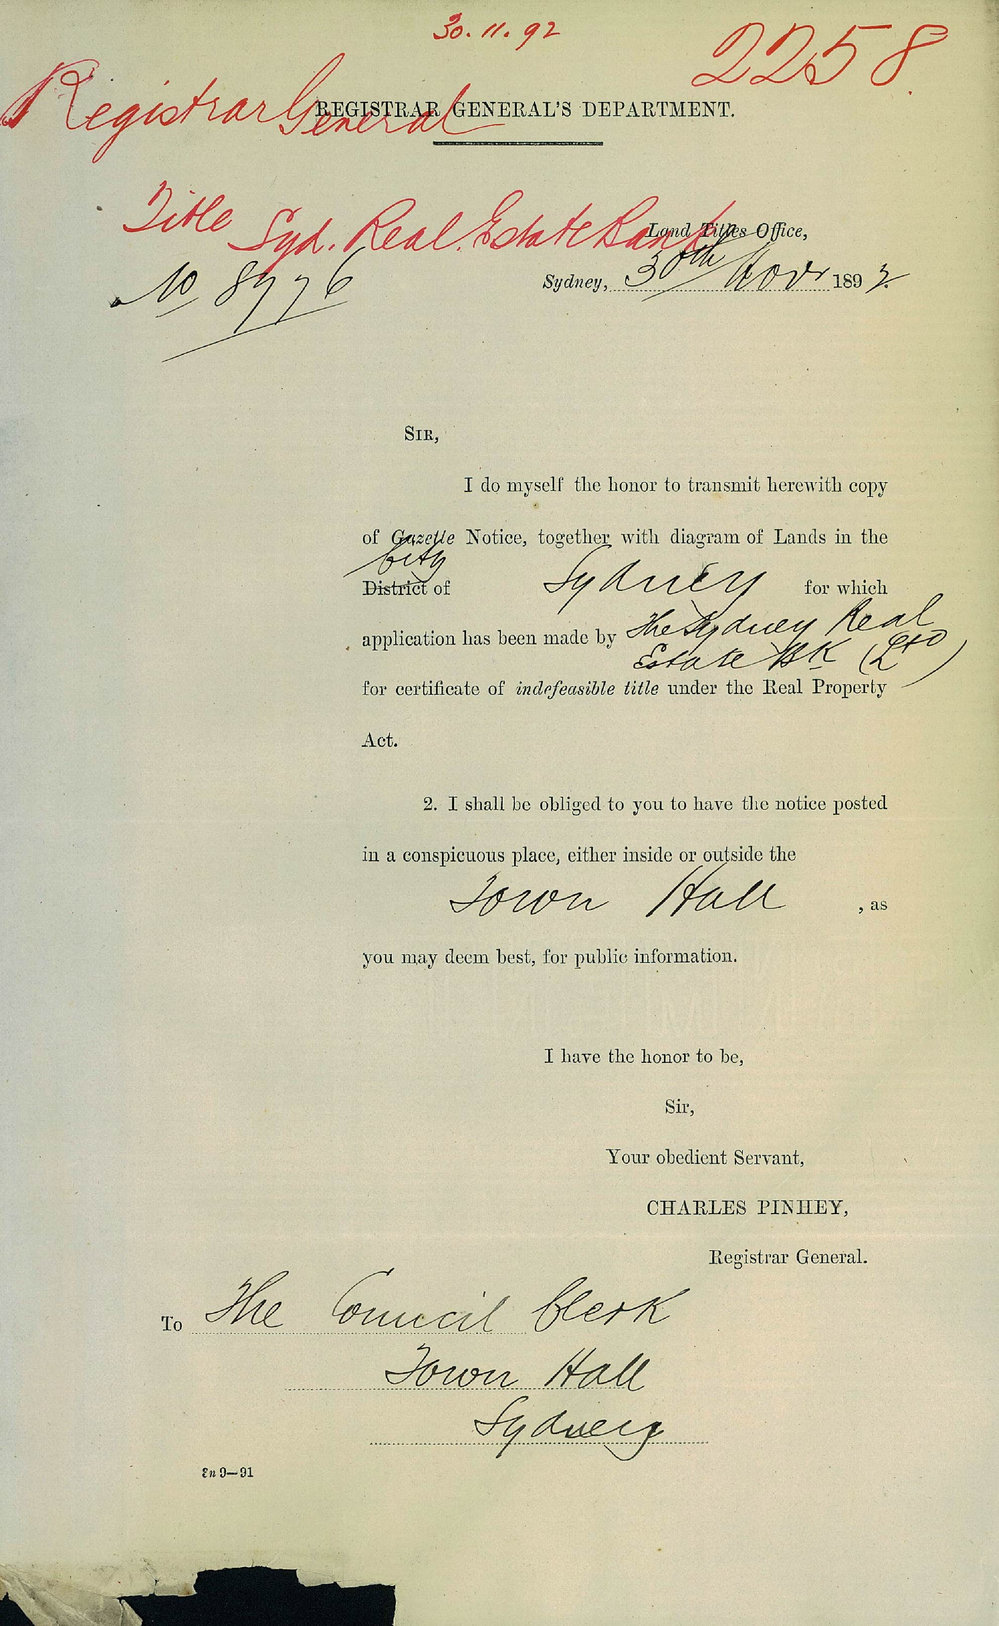 30.11.92
2258
Registrar General
REGISTRAR GENERAL'S DEPARTMENT.
Title Syd. Real. Estate Bank
Land Titles Office,
No 8976
Sydney, 30th Novr 1892.
SIR,
I do myself the honor to transmit herewith copy
of Gazette Notice, together with diagram of Lands in the
City
District of Sydney for which
application has been made by The Sydney Real
Estate Bk (Ltd)
for certificate of indefeasible title under the Real Property
Act.
2. I shall be obliged to you to have the notice posted
in a conspicuous place, either inside or outside the
Town Hall , as
you may deem best, for public information.
I have the honor to be,
Sir,
Your obedient Servant,
CHARLES PINHEY,
Registrar General.
To The Council Clerk
Town Hall
Sydney
9—91